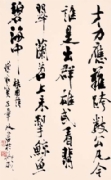 才力應難跨數公凡今
誰是出群雄或看翡
翠蘭苕上未掣鯨魚
碧海中